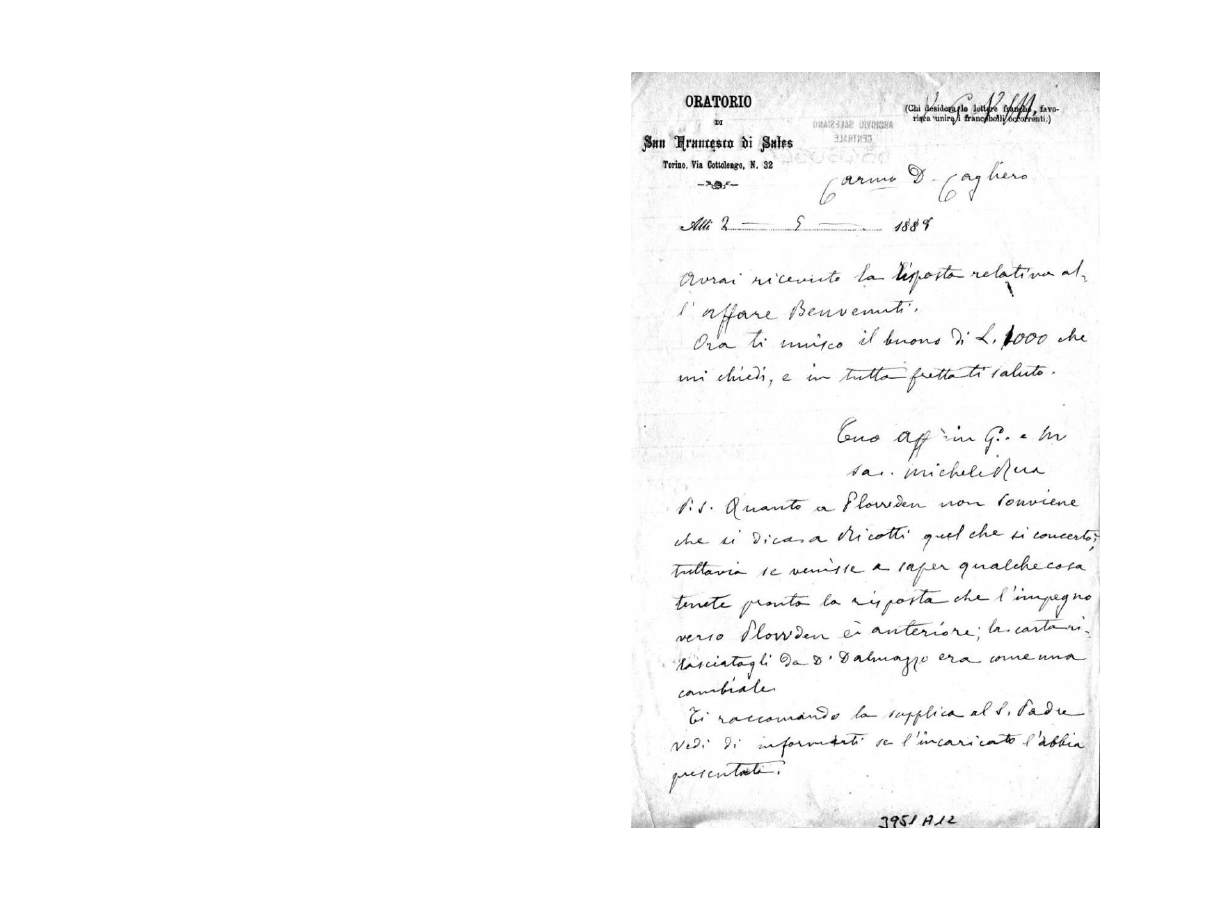 ORATORIO
DI
San Francesco di Sales
Torino, Via Cottolengo, N. 32
(Chi desidera le lettere franche, favo-
risca unire i francobolli occorrenti.)
ARCHIVIO SALESIANO
CENTRALE
Carmo D. Cagliero
Alli 2 5 1888
Avrai ricevuto la risposta relativa al-
l'affare Benvenuti.
Ora ti unisco il buono di L. 1000 che
mi chiedi, e in tutta fretta ti saluto.
Tuo aff in G. e M
sac. Michele Rua
P.S. Quanto a Plowden non conviene
che si dica a Ricotti quel che si concertò;
tuttavia se venisse a saper qualche cosa
tenete pronta la risposta che l'impegno
verso Plowden è anteriore; la carta ri-
lasciatagli da D. Dalmazzo era come una
cambiale.
Ti raccomando la supplica al S. Padre
Vedi di informarti se l'incaricato l'abbia
presentata.
3951 A 12